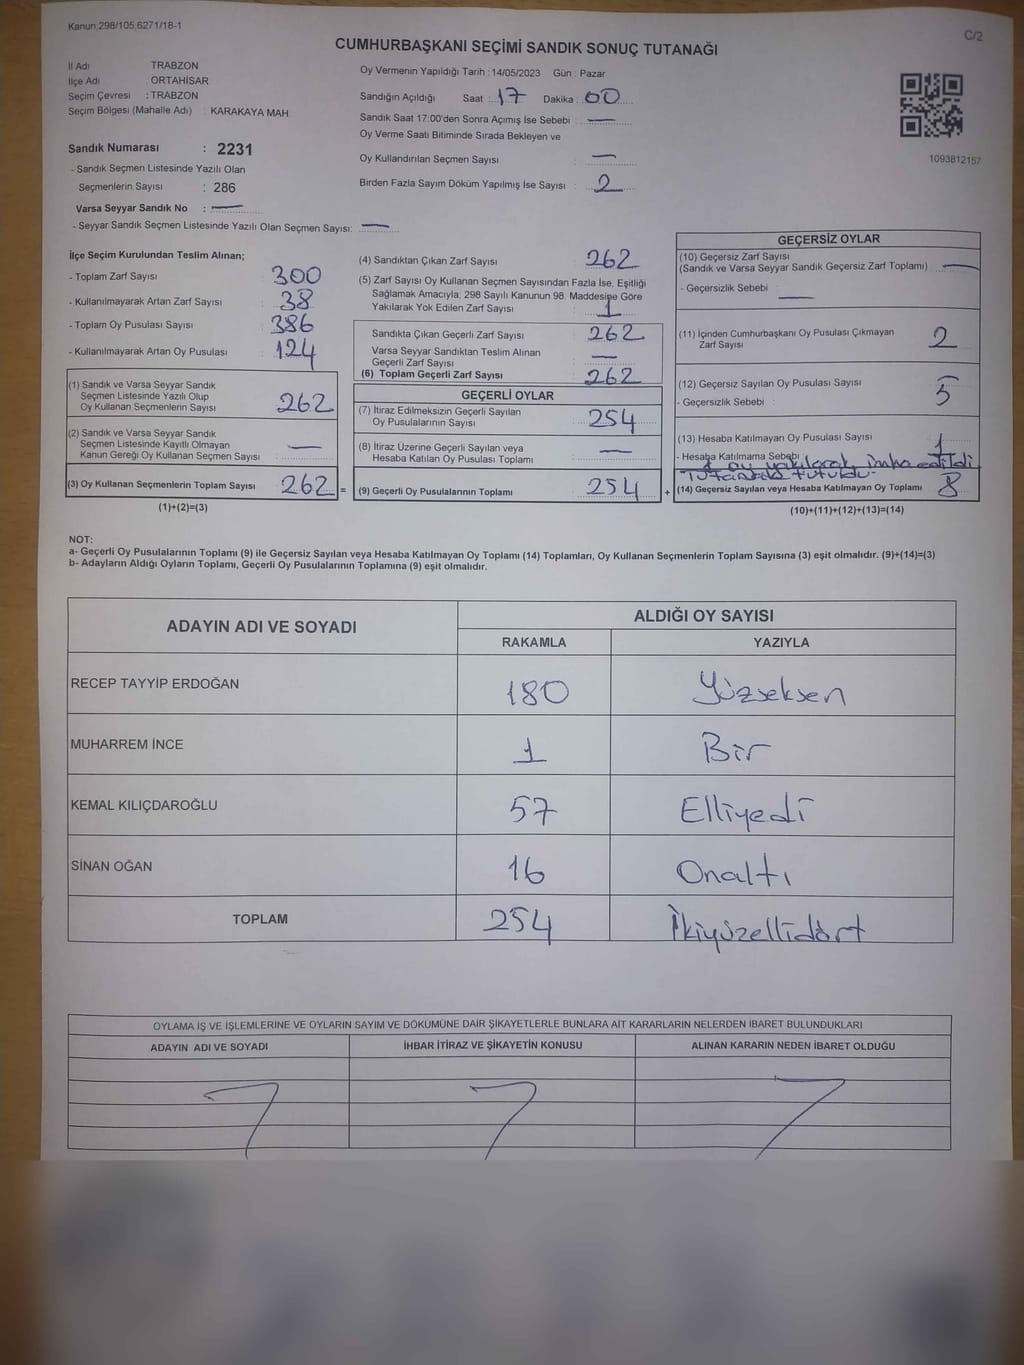 Kanun;298/105;6271/18-1
C/2
CUMHURBAŞKANI SEÇİMİ SANDIK SONUÇ TUTANAĞI
İl Adı TRABZON
İlçe Adı : ORTAHİSAR
Seçim Çevresi : TRABZON
Seçim Bölgesi (Mahalle Adı) : KARAKAYA MAH.
Sandık Numarası : 2231
- Sandık Seçmen Listesinde Yazılı Olan
Seçmenlerin Sayısı : 286
Varsa Seyyar Sandık No : —
- Seyyar Sandık Seçmen Listesinde Yazılı Olan Seçmen Sayısı: —
Oy Vermenin Yapıldığı Tarih : 14/05/2023 Gün : Pazar
Sandığın Açıldığı Saat : 17 Dakika : 00
Sandık Saat 17:00'den Sonra Açımış İse Sebebi : —
Oy Verme Saati Bitiminde Sırada Bekleyen ve
Oy Kullandırılan Seçmen Sayısı : —
Birden Fazla Sayım Döküm Yapılmış İse Sayısı : 2
1093812157
İlçe Seçim Kurulundan Teslim Alınan;
- Toplam Zarf Sayısı : 300
- Kullanılmayarak Artan Zarf Sayısı : 38
- Toplam Oy Pusulası Sayısı : 386
- Kullanılmayarak Artan Oy Pusulası : 124
(1) Sandık ve Varsa Seyyar Sandık
Seçmen Listesinde Yazılı Olup
Oy Kullanan Seçmenlerin Sayısı : 262
(2) Sandık ve Varsa Seyyar Sandık
Seçmen Listesinde Kayıtlı Olmayan
Kanun Gereği Oy Kullanan Seçmen Sayısı : —
(3) Oy Kullanan Seçmenlerin Toplam Sayısı : 262 =
(1)+(2)=(3)
(4) Sandıktan Çıkan Zarf Sayısı : 262
(5) Zarf Sayısı Oy Kullanan Seçmen Sayısından Fazla İse, Eşitliği
Sağlamak Amacıyla, 298 Sayılı Kanunun 98. Maddesine Göre
Yakılarak Yok Edilen Zarf Sayısı : 1
Sandıkta Çıkan Geçerli Zarf Sayısı : 262
Varsa Seyyar Sandıktan Teslim Alınan
Geçerli Zarf Sayısı : —
(6) Toplam Geçerli Zarf Sayısı : 262
GEÇERLİ OYLAR
(7) İtiraz Edilmeksizin Geçerli Sayılan
Oy Pusulalarının Sayısı : 254
(8) İtiraz Üzerine Geçerli Sayılan veya
Hesaba Katılan Oy Pusulası Toplamı : —
(9) Geçerli Oy Pusulalarının Toplamı : 254 +
GEÇERSİZ OYLAR
(10) Geçersiz Zarf Sayısı
(Sandık ve Varsa Seyyar Sandık Geçersiz Zarf Toplamı) : —
- Geçersizlik Sebebi : —
(11) İçinden Cumhurbaşkanı Oy Pusulası Çıkmayan
Zarf Sayısı : 2
(12) Geçersiz Sayılan Oy Pusulası Sayısı : 5
- Geçersizlik Sebebi :
(13) Hesaba Katılmayan Oy Pusulası Sayısı : 1
- Hesaba Katılmama Sebebi
1 oy yakılarak imha edildi
Tutanak tutuldu.
(14) Geçersiz Sayılan veya Hesaba Katılmayan Oy Toplamı : 8
(10)+(11)+(12)+(13)=(14)
NOT:
a- Geçerli Oy Pusulalarının Toplamı (9) ile Geçersiz Sayılan veya Hesaba Katılmayan Oy Toplamı (14) Toplamları, Oy Kullanan Seçmenlerin Toplam Sayısına (3) eşit olmalıdır. (9)+(14)=(3)
b- Adayların Aldığı Oyların Toplamı, Geçerli Oy Pusulalarının Toplamına (9) eşit olmalıdır.
ADAYIN ADI VE SOYADI ALDIĞI OY SAYISI
RAKAMLA YAZIYLA
RECEP TAYYİP ERDOĞAN 180 Yüzseksen
MUHARREM İNCE 1 Bir
KEMAL KILIÇDAROĞLU 57 Elliyedi
SİNAN OĞAN 16 Onaltı
TOPLAM 254 İkiyüzellidört
OYLAMA İŞ VE İŞLEMLERİNE VE OYLARIN SAYIM VE DÖKÜMÜNE DAİR ŞİKAYETLERLE BUNLARA AİT KARARLARIN NELERDEN İBARET BULUNDUKLARI
ADAYIN ADI VE SOYADI İHBAR İTİRAZ VE ŞİKAYETİN KONUSU ALINAN KARARIN NEDEN İBARET OLDUĞU